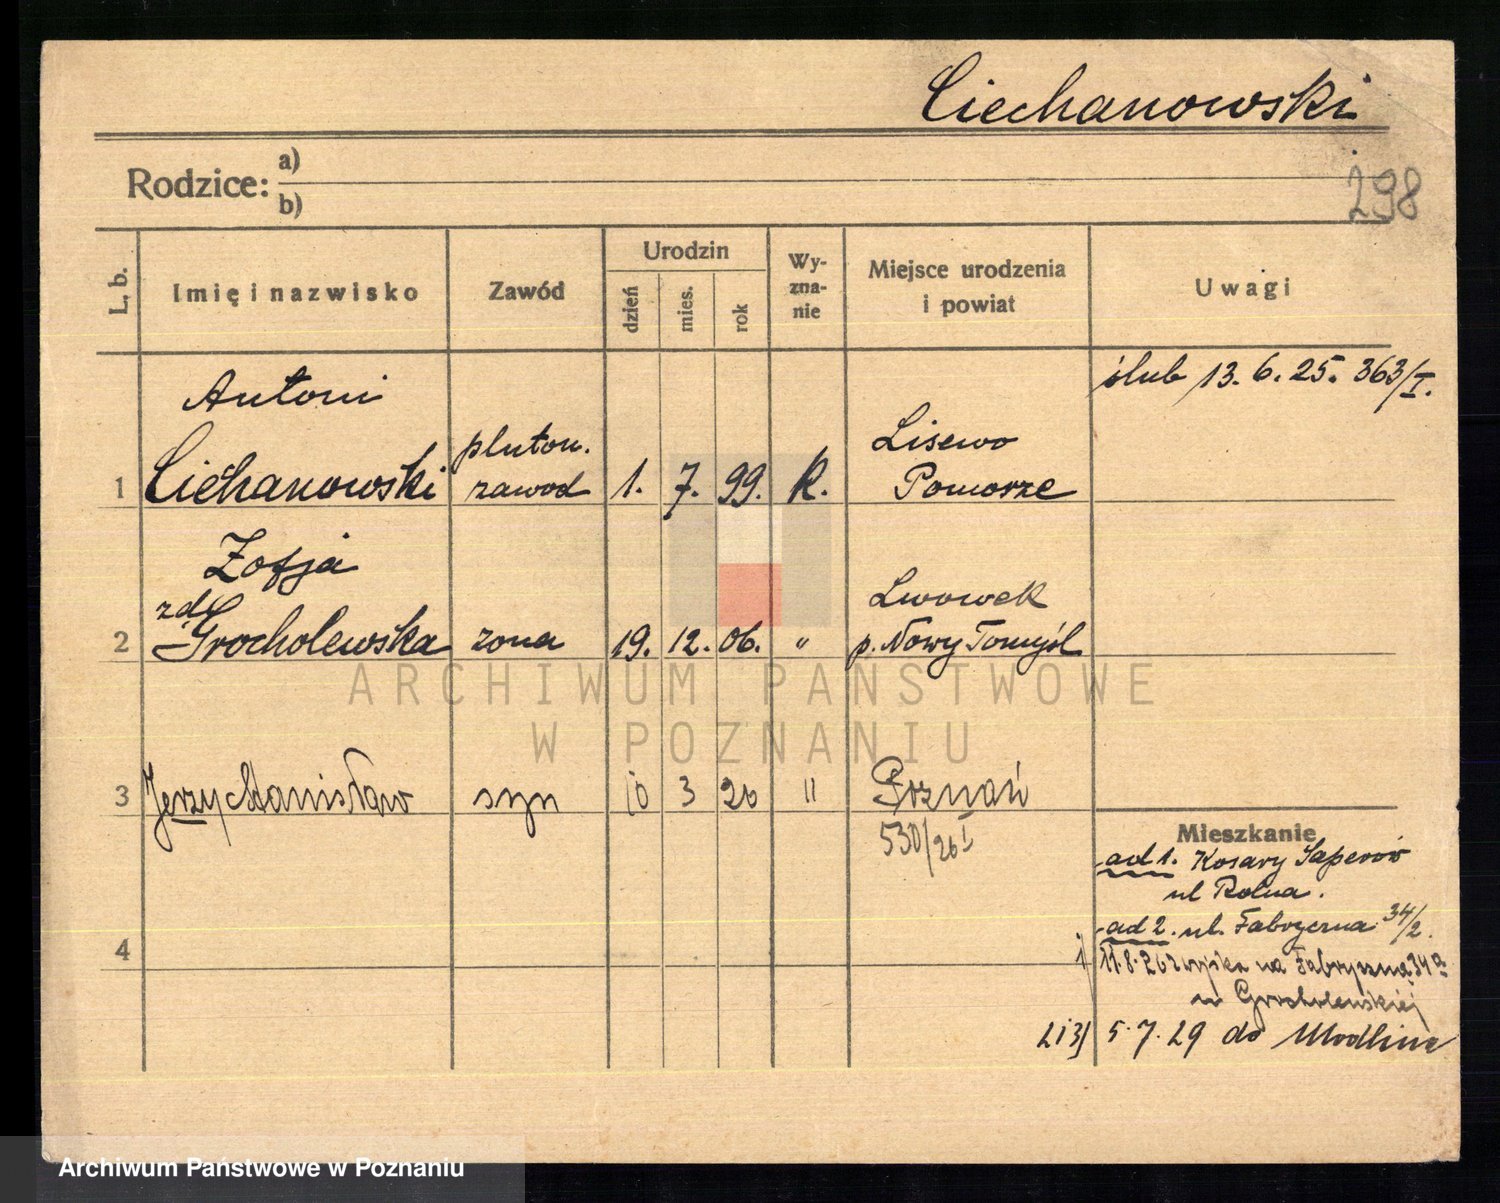 Ciechanowski
Rodzice: a)
b)
298
L. b.
Imię i nazwisko
Zawód
Urodzin
dzień
mies.
rok
Wy-
zna-
nie
Miejsce urodzenia
i powiat
Uwagi
ślub 13. 6. 25. 363/I.
Antoni
1 Ciechanowski
pluton.
zawod
1. 7. 99. K.
Lisewo
Pomorze
Zofja
zd
2 Grocholewska
zona 19. 12. 06. "
Lwowek
p. Nowy Tomyśl
ARCHIWUM PAŃSTWOWE
W POZNANIU
3 Jerzy Stanisław syn 10 3 26 " Poznań
530/26 I
Mieszkanie
ad 1. Kosary Saperów
ul Rolna.
ad 2. ul. Fabryczna 34/2.
4
1) 11.8.26 z wojska na Fabryczna 34a
u Grocholewskiej
2 i 3) 5.7.29 do Modlina
Archiwum Państwowe w Poznaniu